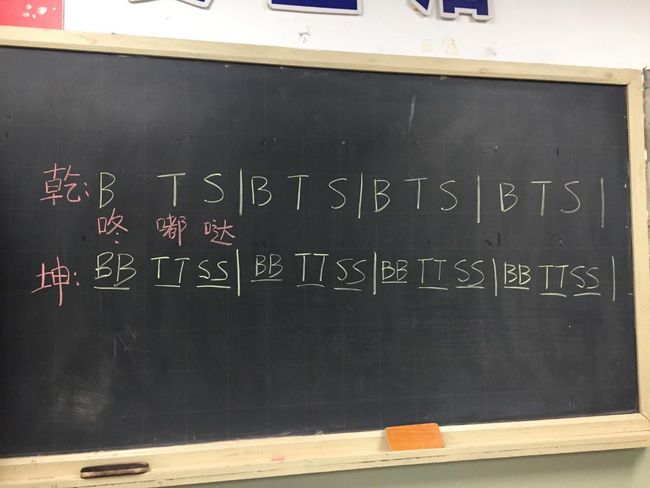 乾: B T S | B T S | B T S | B T S |
咚 嘟 哒
坤: BB TT SS | BB TT SS | BB TT SS | BB TT SS |